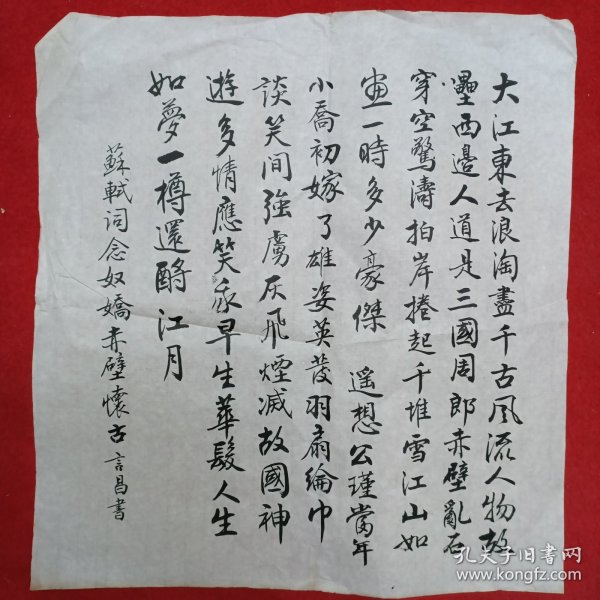 大江東去浪淘盡千古風流人物故
壘西邊人道是三國周郎赤壁亂石
穿空驚濤拍岸捲起千堆雪江山如
畫一時多少豪傑 遥想公瑾當年
小喬初嫁了雄姿英發羽扇綸巾
談笑间強虜灰飛煙滅故國神
遊多情應笑我早生華髮人生
如夢一樽還酹江月
蘇軾词念奴嬌赤壁懷古 言昌書
孔夫子旧书网
www.kongfz.com